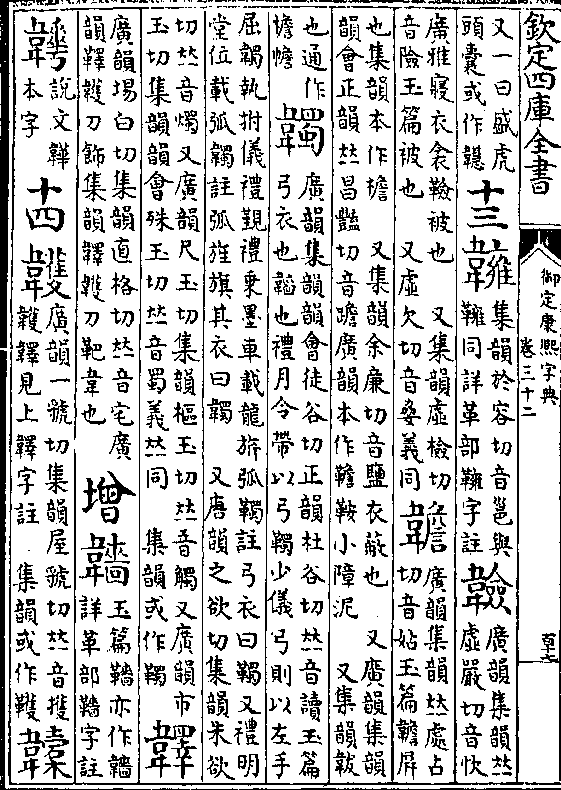 欽定四庫全書
御定康熙字典
卷三十二
又一曰盛虎
頭囊或作
十三
集韻於容切音邕與
同詳革部字註
廣韻集韻𠀤
虛嚴切音忺
廣雅寢衣衾被也 又集韻虛檢切
音險玉篇被也 又虛欠切音義同
韂
廣韻集韻𠀤處占
切音玉篇韂屏
也集韻本作襜 又集韻余廉切音鹽衣蔽也 又廣韻集韻
韻會正韻𠀤昌豔切音廣韻本作韂鞍小障泥 又集韻韍
也通作
襜幨
韣
廣韻集韻韻會徒谷切正韻杜谷切𠀤音讀玉篇
弓衣也韜也禮月令帶以弓韣少儀弓則以左手
屈韣執拊儀禮覲禮乘墨車載龍旂弧韣註弓衣曰韣又禮明
堂位載弧韣註弧旌旗其衣曰韣 又唐韻之欲切集韻朱欲
切𠀤音燭又廣韻尺玉切集韻樞玉切𠀤音觸又廣韻市
玉切集韻韻會殊玉切𠀤音蜀義𠀤同 集韻或作
廣韻場白切集韻直格切𠀤音宅廣
韻刀飾集韻刀靶韋也
增
玉篇亦作
詳革部字註
說文韡
本字
十四
廣韻一號切集韻屋號切𠀤音擭
見上字註 集韻或作韄